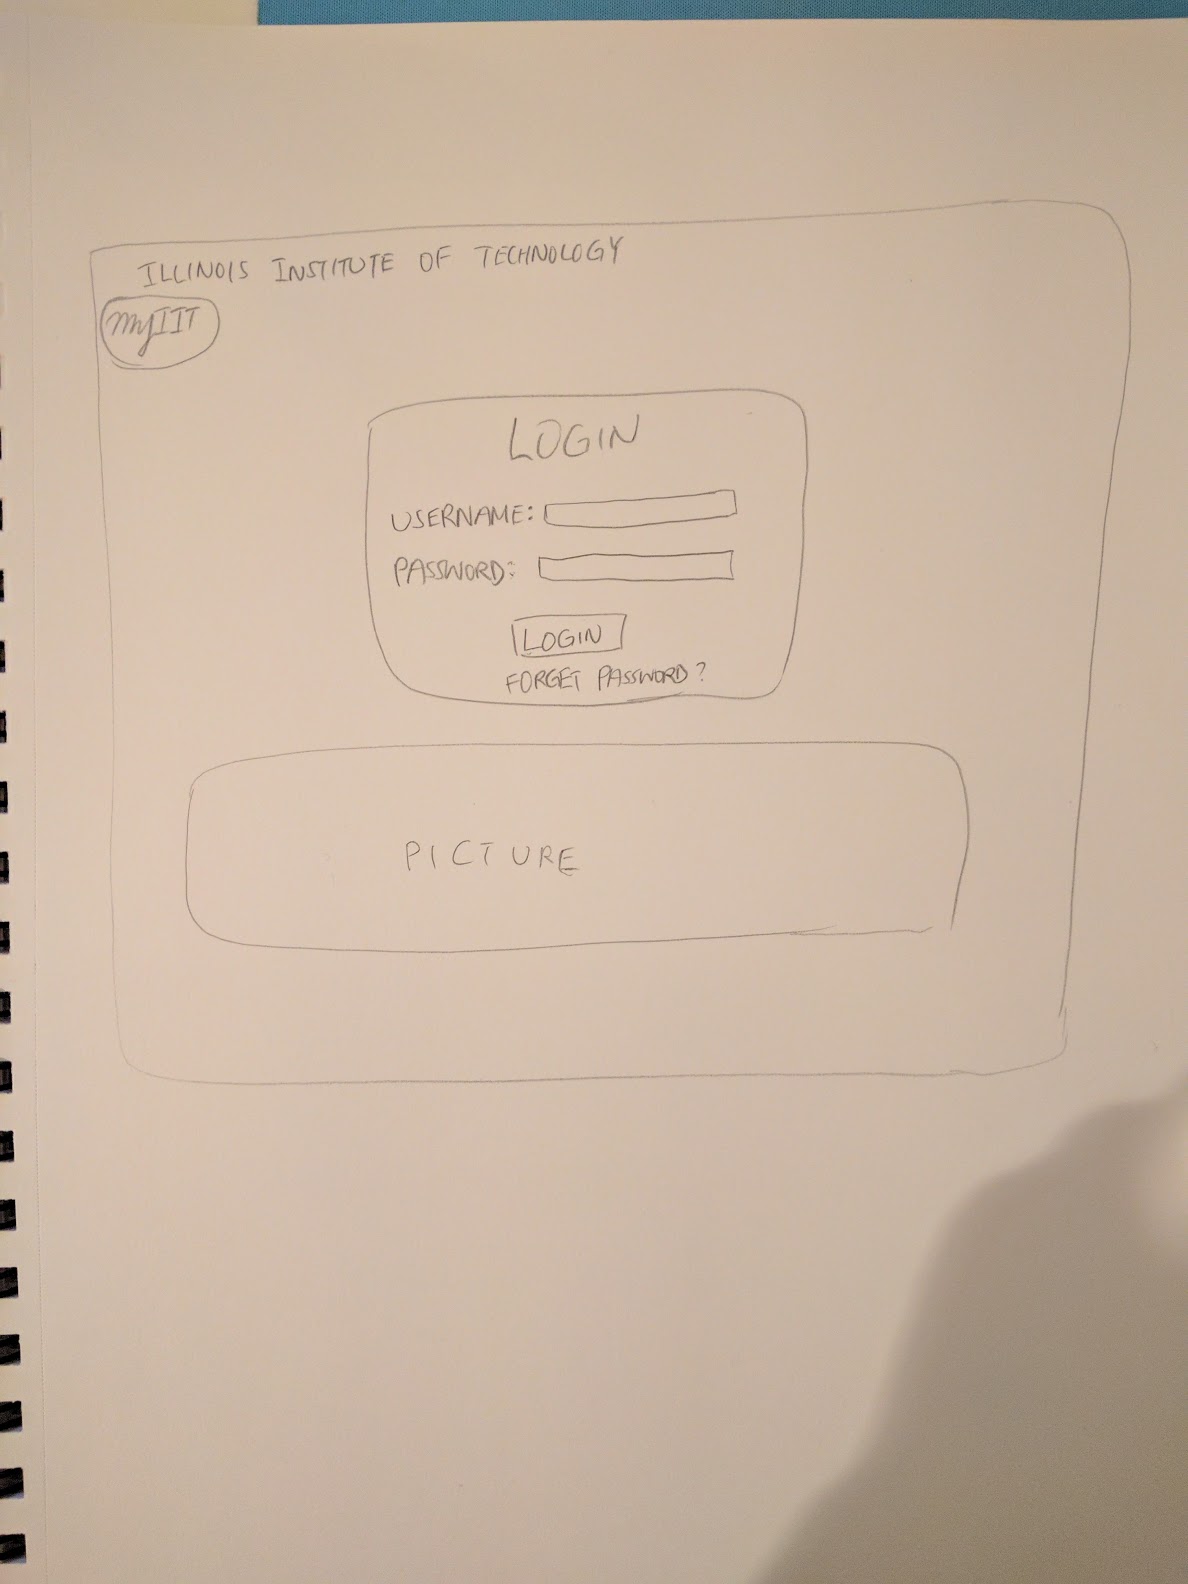 ILLINOIS INSTITUTE OF TECHNOLOGY
myIIT
LOGIN
USERNAME:
PASSWORD:
LOGIN
FORGET PASSWORD?
PICTURE